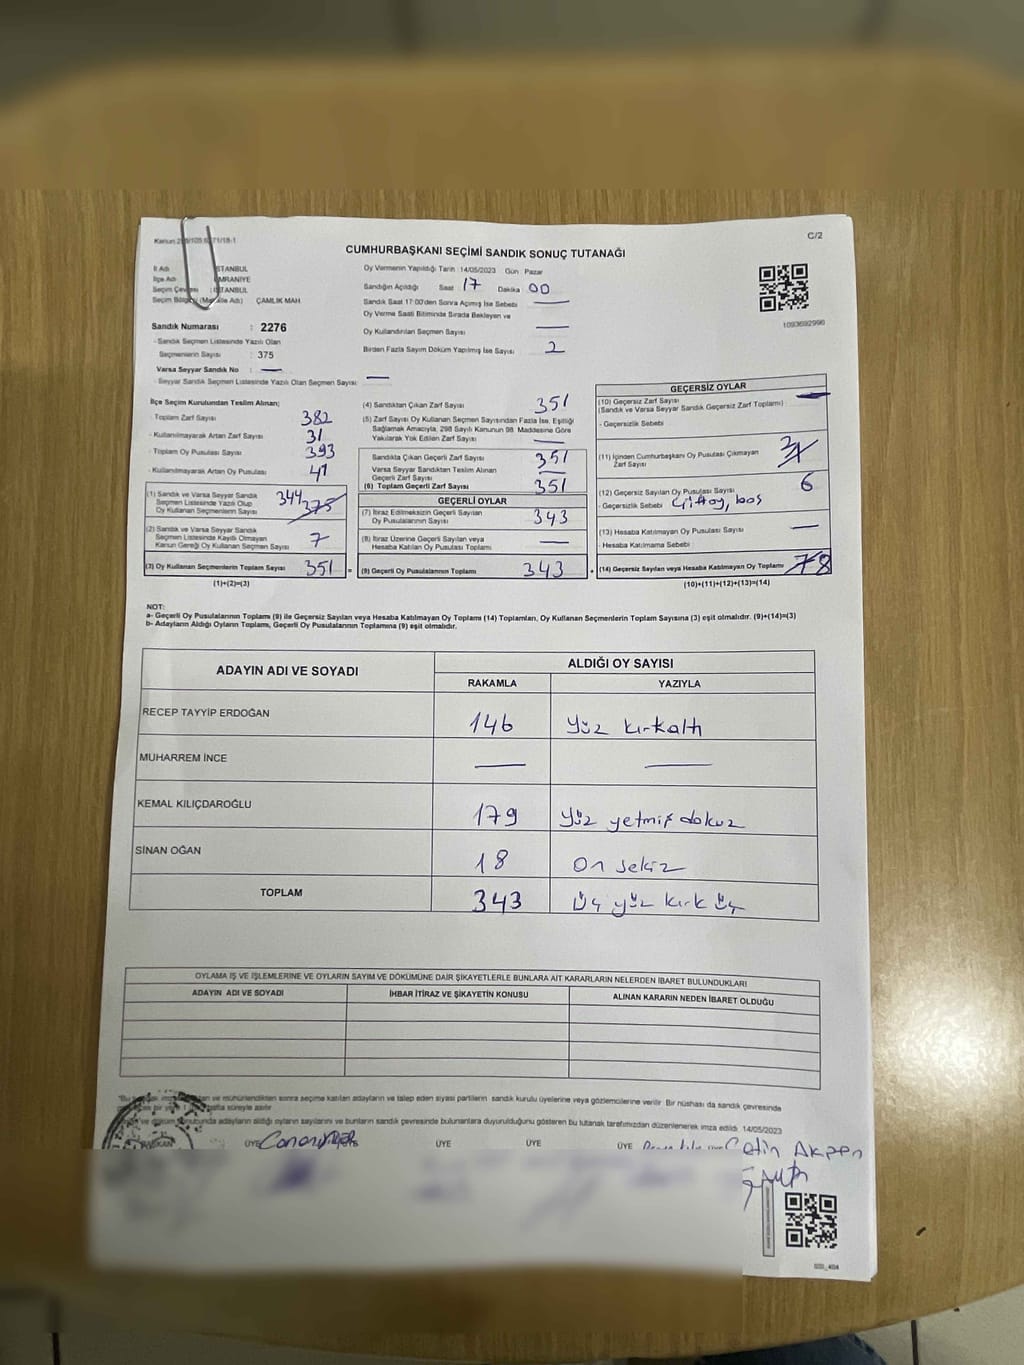 C/2
CUMHURBAŞKANI SEÇİMİ SANDIK SONUÇ TUTANAĞI
İl Adı İSTANBUL
İlçe Adı ÜMRANİYE
Seçim Çevresi İSTANBUL
Seçim Bölgesi (Mahalle Adı) ÇAMLIK MAH
Sandık Numarası : 2276
- Sandık Seçmen Listesinde Yazılı Olan
Seçmenlerin Sayısı : 375
Varsa Seyyar Sandık No : —
- Seyyar Sandık Seçmen Listesinde Yazılı Olan Seçmen Sayısı : —
Oy Vermenin Yapıldığı Tarih : 14/05/2023 Gün : Pazar
Sandığın Açıldığı Saat : 17 Dakika : 00
Sandık Saat 17:00'den Sonra Açımış İse Sebebi : —
Oy Verme Saati Bitiminde Sırada Bekleyen ve
Oy Kullandırılan Seçmen Sayısı : —
Birden Fazla Sayım Döküm Yapılmış İse Sayısı : 2
1093692996
İlçe Seçim Kurulundan Teslim Alınan;
- Toplam Zarf Sayısı 382
- Kullanılmayarak Artan Zarf Sayısı 31
- Toplam Oy Pusulası Sayısı 393
- Kullanılmayarak Artan Oy Pusulası 41
(1) Sandık ve Varsa Seyyar Sandık
Seçmen Listesinde Yazılı Olup
Oy Kullanan Seçmen Sayısı 344 375
(2) Sandık ve Varsa Seyyar Sandık
Seçmen Listesinde Kayıtlı Olmayan
Kanun Gereği Oy Kullanan Seçmen Sayısı 7
(3) Oy Kullanan Seçmenlerin Toplam Sayısı 351 =
(1)+(2)=(3)
(4) Sandıktan Çıkan Zarf Sayısı 351
(5) Zarf Sayısı Oy Kullanan Seçmen Sayısından Fazla İse, Eşitliği
Sağlamak Amacıyla, 298 Sayılı Kanunun 98. Maddesine Göre
Yakılarak Yok Edilen Zarf Sayısı —
Sandıkta Çıkan Geçerli Zarf Sayısı 351
Varsa Seyyar Sandıktan Teslim Alınan
Geçerli Zarf Sayısı —
(6) Toplam Geçerli Zarf Sayısı 351
GEÇERLİ OYLAR
(7) İtiraz Edilmeksizin Geçerli Sayılan
Oy Pusulalarının Sayısı 343
(8) İtiraz Üzerine Geçerli Sayılan veya
Hesaba Katılan Oy Pusulası Toplamı —
(9) Geçerli Oy Pusulalarının Toplamı 343 +
GEÇERSİZ OYLAR
(10) Geçersiz Zarf Sayısı
(Sandık ve Varsa Seyyar Sandık Geçersiz Zarf Toplamı) —
- Geçersizlik Sebebi
(11) İçinden Cumhurbaşkanı Oy Pusulası Çıkmayan
Zarf Sayısı
(12) Geçersiz Sayılan Oy Pusulası Sayısı 6
- Geçersizlik Sebebi Çift oy, boş
(13) Hesaba Katılmayan Oy Pusulası Sayısı —
- Hesaba Katılmama Sebebi
(14) Geçersiz Sayılan veya Hesaba Katılmayan Oy Toplamı 7 8
(10)+(11)+(12)+(13)=(14)
NOT:
a- Geçerli Oy Pusulalarının Toplamı (9) ile Geçersiz Sayılan veya Hesaba Katılmayan Oy Toplamı (14) Toplamları, Oy Kullanan Seçmenlerin Toplam Sayısına (3) eşit olmalıdır. (9)+(14)=(3)
b- Adayların Aldığı Oyların Toplamı, Geçerli Oy Pusulalarının Toplamına (9) eşit olmalıdır.
ADAYIN ADI VE SOYADI
ALDIĞI OY SAYISI
RAKAMLA YAZIYLA
RECEP TAYYİP ERDOĞAN 146 Yüz kırkaltı
MUHARREM İNCE — —
KEMAL KILIÇDAROĞLU 179 Yüz yetmiş dokuz
SİNAN OĞAN 18 On sekiz
TOPLAM 343 Üç yüz kırk üç
OYLAMA İŞ VE İŞLEMLERİNE VE OYLARIN SAYIM VE DÖKÜMÜNE DAİR ŞİKAYETLERLE BUNLARA AİT KARARLARIN NELERDEN İBARET BULUNDUKLARI
ADAYIN ADI VE SOYADI İHBAR İTİRAZ VE ŞİKAYETİN KONUSU ALINAN KARARIN NEDEN İBARET OLDUĞU
ve mühürlendikten sonra seçime katılan adayların ve talep eden siyasi partilerin sandık kurulu üyelerine veya gözlemcilerine verilir. Bir nüshası da sandık çevresinde
hafta süreyle asılır
ve döküm sonucunda adayların aldığı oyların sayılarını ve bunların sandık çevresinde bulunanlara duyurulduğunu gösteren bu tutanak tarafımızdan düzenlenerek imza edildi. 14/05/2023
BAŞKAN ÜYE ÜYE ÜYE ÜYE Çetin Akpen